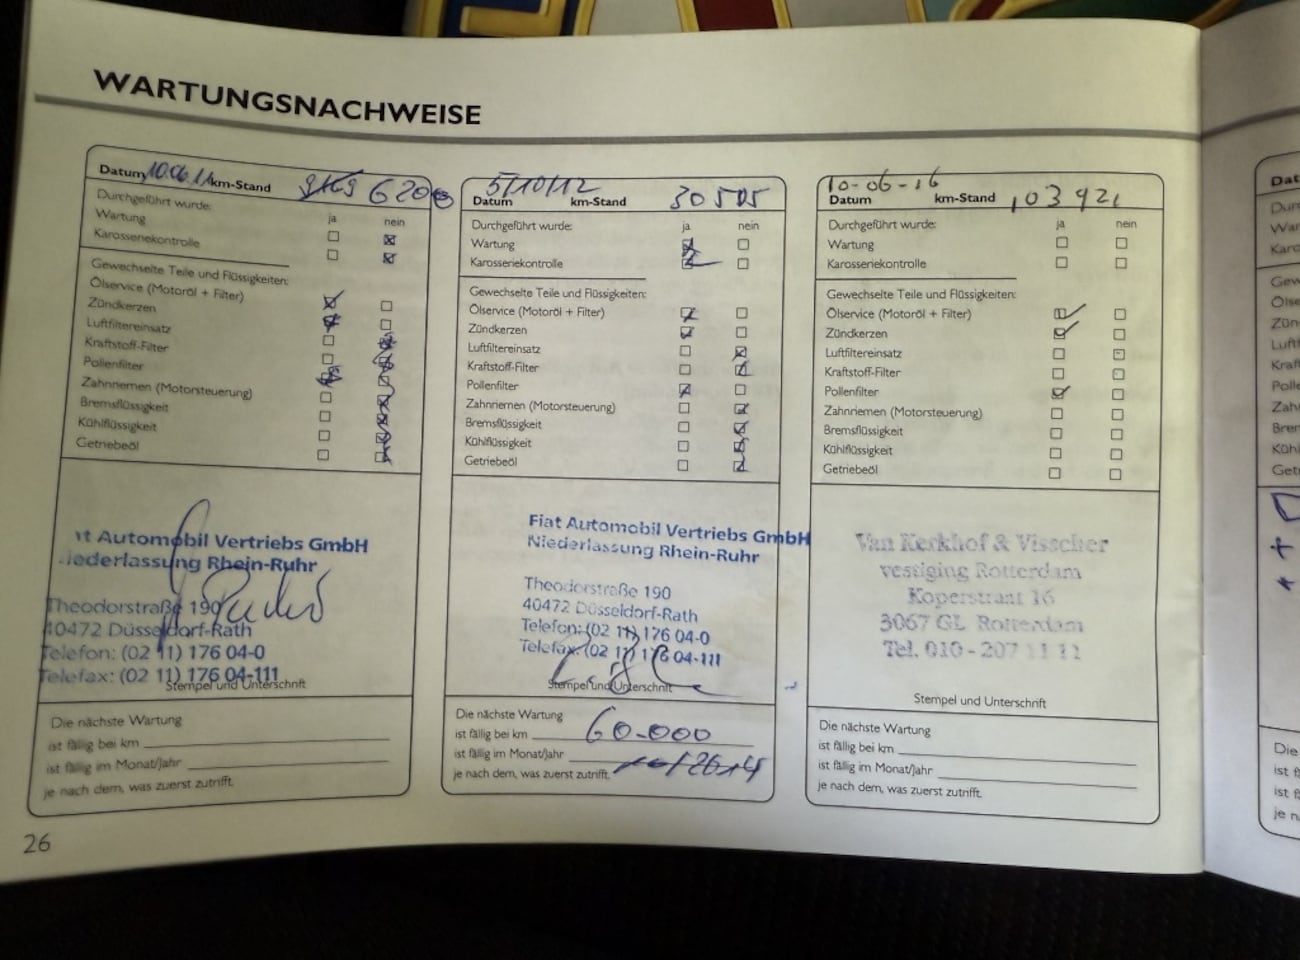 WARTUNGSNACHWEISE
Datum 10.06.11 km-Stand 620
Durchgeführt wurde:
ja nein
Wartung
Karosseriekontrolle
Gewechselte Teile und Flüssigkeiten:
Ölservice (Motoröl + Filter)
Zündkerzen
Luftfiltereinsatz
Kraftstoff-Filter
Pollenfilter
Zahnriemen (Motorsteuerung)
Bremsflüssigkeit
Kühlflüssigkeit
Getriebeöl
t Automobil Vertriebs GmbH
iederlassung Rhein-Ruhr
Theodorstraße 190
40472 Düsseldorf-Rath
Telefon: (02 11) 176 04-0
Telefax: (02 11) 176 04-111
Stempel und Unterschrift
Die nächste Wartung
ist fällig bei km
ist fällig im Monat/Jahr
je nach dem, was zuerst zutrifft.
26
5/10/12
Datum km-Stand 30505
Durchgeführt wurde:
ja nein
Wartung
Karosseriekontrolle
Gewechselte Teile und Flüssigkeiten:
Ölservice (Motoröl + Filter)
Zündkerzen
Luftfiltereinsatz
Kraftstoff-Filter
Pollenfilter
Zahnriemen (Motorsteuerung)
Bremsflüssigkeit
Kühlflüssigkeit
Getriebeöl
Fiat Automobil Vertriebs GmbH
Niederlassung Rhein-Ruhr
Theodorstraße 190
40472 Düsseldorf-Rath
Telefon: (02 11) 176 04-0
Telefax: (02 11) 176 04-111
Stempel und Unterschrift
Die nächste Wartung
ist fällig bei km 60.000
ist fällig im Monat/Jahr
je nach dem, was zuerst zutrifft. /2014
10-06-16
Datum km-Stand 103921
Durchgeführt wurde:
ja nein
Wartung
Karosseriekontrolle
Gewechselte Teile und Flüssigkeiten:
Ölservice (Motoröl + Filter)
Zündkerzen
Luftfiltereinsatz
Kraftstoff-Filter
Pollenfilter
Zahnriemen (Motorsteuerung)
Bremsflüssigkeit
Kühlflüssigkeit
Getriebeöl
Van Kerkhof & Visscher
vestiging Rotterdam
Koperstraat 16
3067 GL Rotterdam
Tel. 010 - 207 11 11
Stempel und Unterschrift
Die nächste Wartung
ist fällig bei km
ist fällig im Monat/Jahr
je nach dem, was zuerst zutrifft.